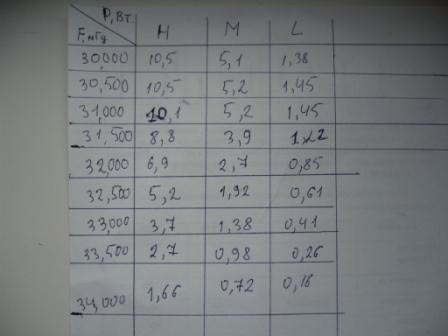 P, Вт. H M L
F, мГц
30,000 10,5 5,1 1,38
30,500 10,5 5,2 1,45
31,000 10,1 5,2 1,45
31,500 8,8 3,9 1,22
32,000 6,9 2,7 0,85
32,500 5,2 1,92 0,61
33,000 3,7 1,38 0,41
33,500 2,7 0,98 0,26
34,000 1,66 0,72 0,16